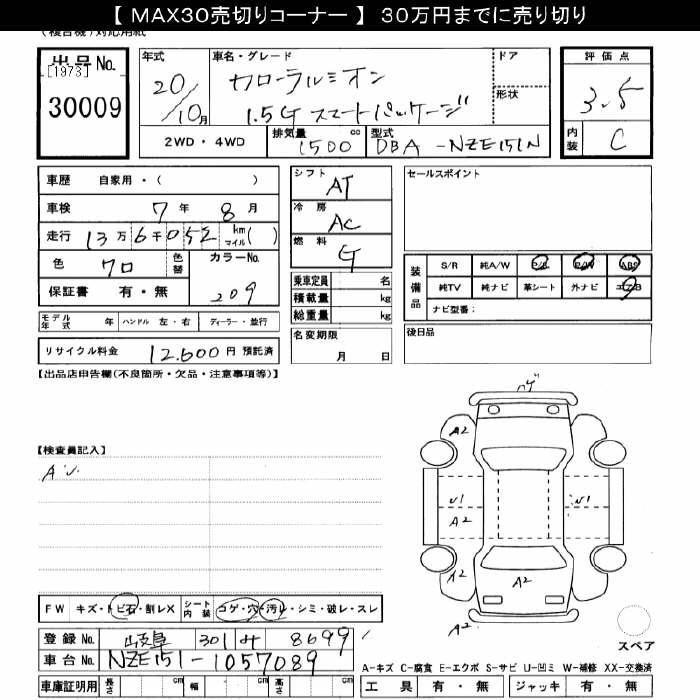 【 MAX30売切りコーナー 】 30万円までに売り切り
(複合機)対応用紙
出品No.
[1973]
30009
年式
20/10月
車名・グレード
カローラルミオン
1.5G スマートパッケージ
ドア
形状
評価点
3.5
内装 C
2WD・4WD
排気量 1500 cc
型式 DBA-NZE151N
車歴 自家用・( )
車検 7年 8月
走行 13万6千052 km マイル( )
色 クロ 色替
カラーNo. 209
保証書 有・無
モデル年式 年 ハンドル 左・右 ディーラー・並行
リサイクル料金 12,600円 預託済
シフト AT
冷房 AC
燃料 G
乗車定員 名
積載量 kg
総重量 kg
名変期限 月 日
セールスポイント
装備品
S/R 純A/W P/S P/W ABS
純TV 純ナビ 革シート 外ナビ エアB
ナビ型番:
後日品
【出品店申告欄(不良箇所・欠品・注意事項等)】
【検査員記入】
A2
A2
A2
A2
A2
FW キズ・トビ石・割レX
シート内装 コゲ・穴・汚レ・シミ・破レ・スレ
登録No. 岐阜 301 み 8699
車台No. NZE151-1057089
車庫証明用 長さ cm 幅 cm 高さ cm
スペア
A-キズ C-腐食 E-エクボ S-サビ U-凹ミ W-補修 XX-交換済
工具 有・無 ジャッキ 有・無